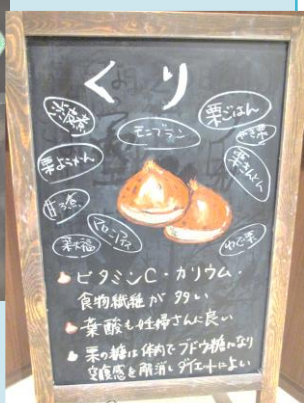 くり
渋皮煮
モンブラン
栗ごはん
やき栗
栗ようかん
栗きんとん
甘ろ煮
マロングラッセ
栗大福
ゆで栗
ビタミンC・カリウム・
食物繊維が多い
葉酸も妊婦さんに良い
栗の糖は体内でブドウ糖になり
空腹感を解消しダイエットによい